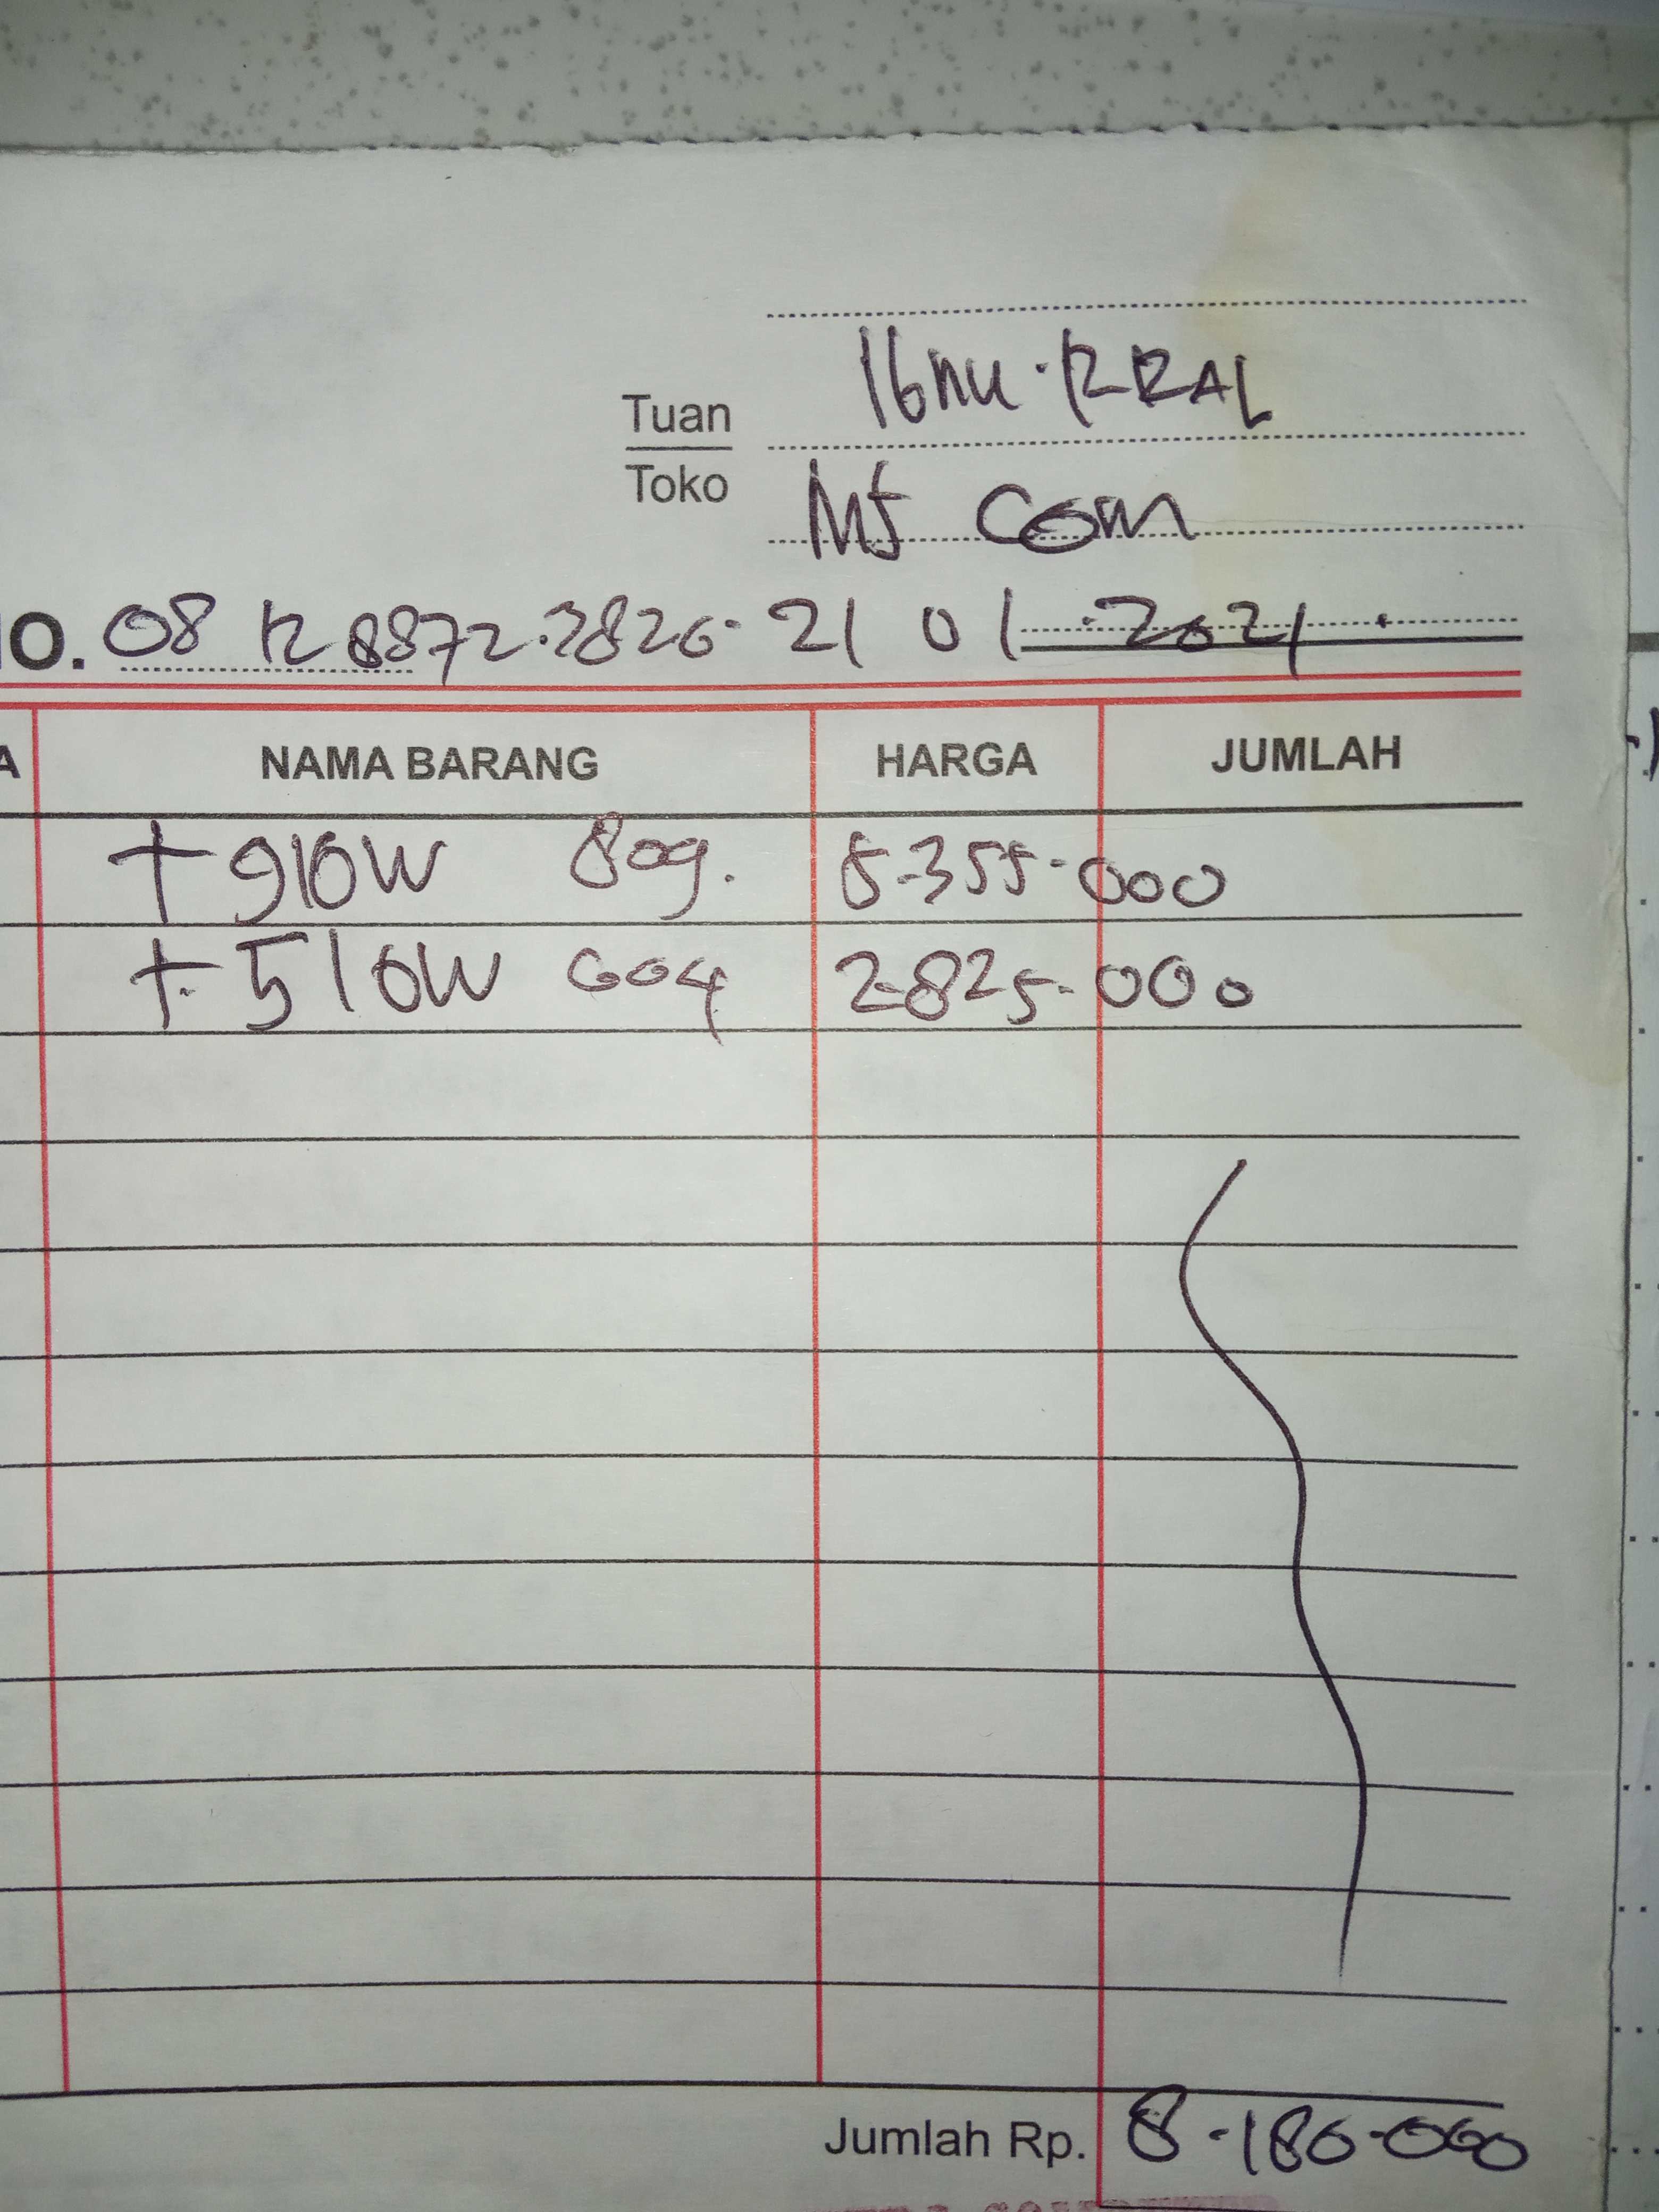 Ibnu . RRAL
Tuan
Toko
MF Com
NO. 08 12 8872.3826. 21 01 . 2021 .
A NAMA BARANG HARGA JUMLAH
+ 910W 809. 5.355.000
+. 510W 604 2.825.000
Jumlah Rp. 8.180.000